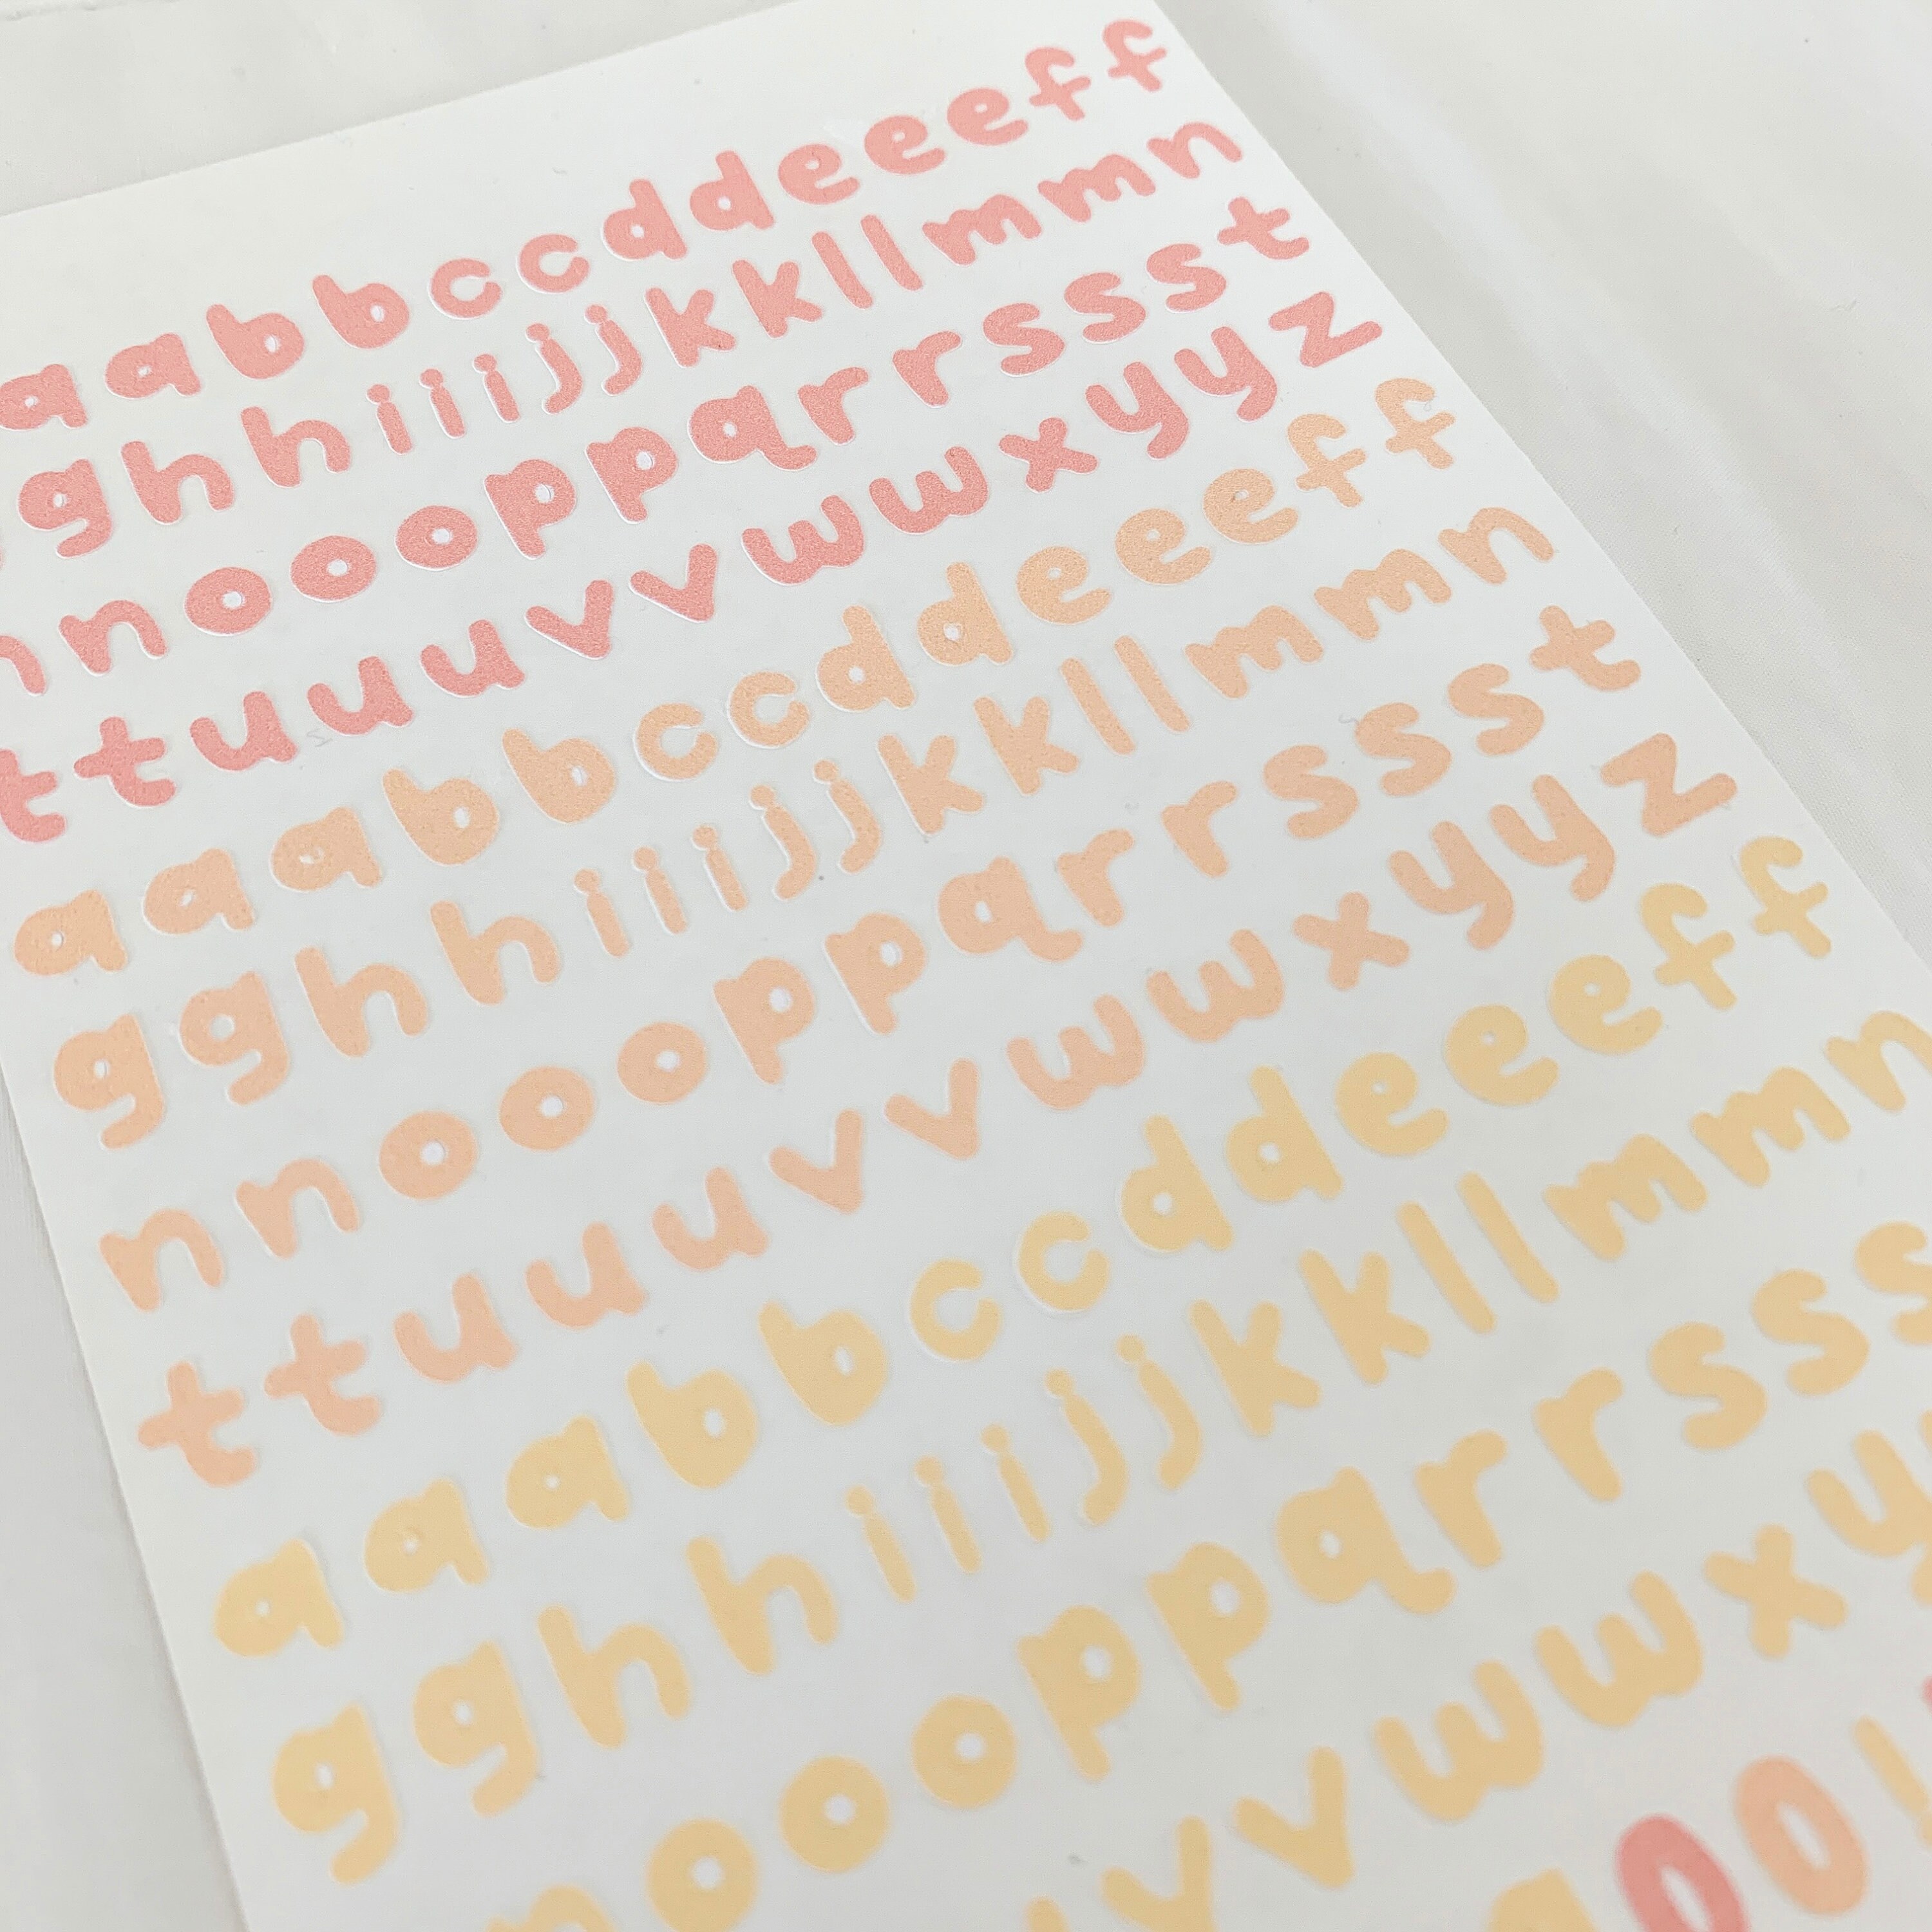 aabbccddeeeff
ghhiiijjkkllmmn
nnoooppqrrssst
ttuuuvvwwxyyz
aaabbccddeeeff
gghhiiijjkkllmmn
nnoooppqrrssst
ttuuuvvwwxyyz
aaabbccddeeeff
gghhiiijjkkllmmn
noooppqrrsss
vvwwxy
00!